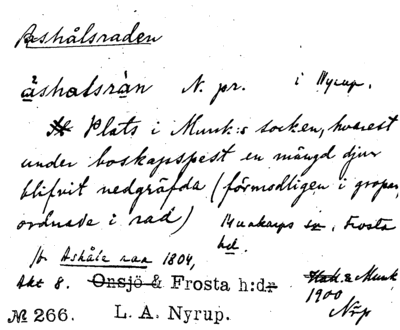 Åshålsraden
åshalsrȧn N. pr. i Nyrup.
Plats i Munk:s socken, hvarest
under boskapspest en mängd djur
blifvit nedgräfda (förmodligen i gropar,
ordnade i rad) Munkarps sn, Frosta
hd.
Åshåla raa 1804,
Akt 8. Onsjö & Frosta h:dr & Munk
1900
№ 266. L. A. Nyrup. Nrp